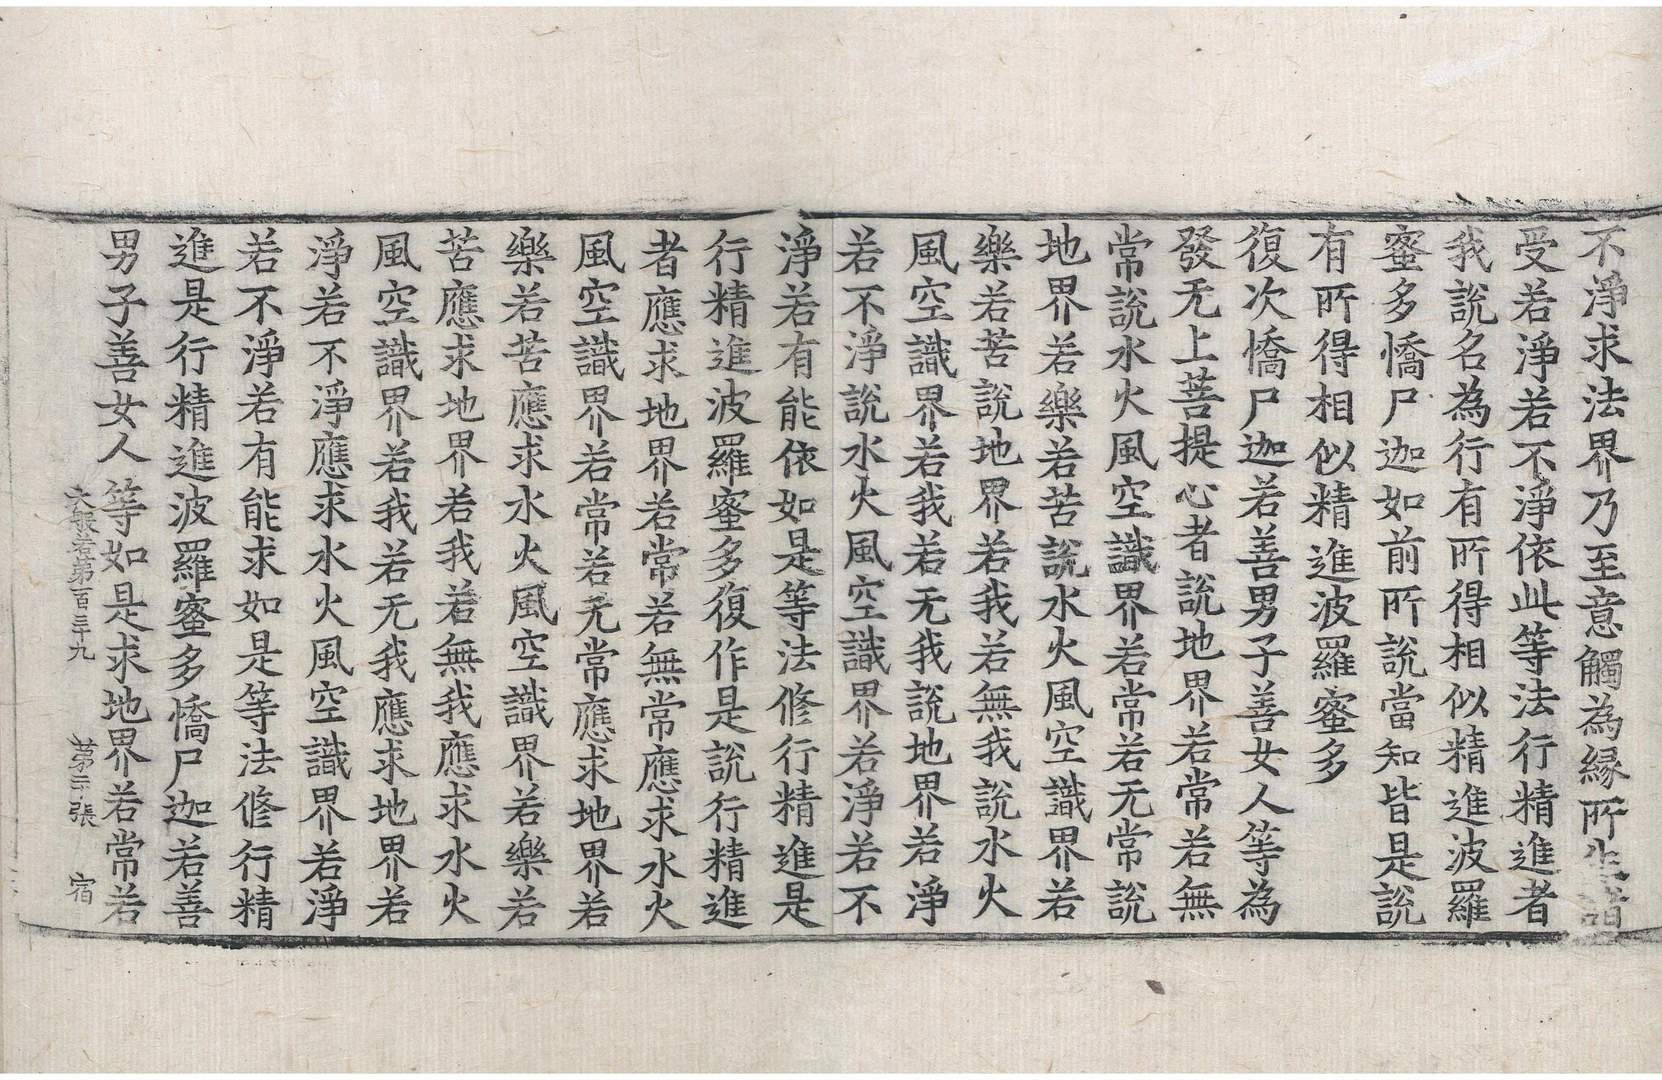 不淨求法界乃至意觸為縁所生諸
受若淨若不淨依此等法行精進者
我說名為行有所得相似精進波羅
蜜多憍尸迦如前所說當知皆是說
有所得相似精進波羅蜜多
復次憍尸迦若善男子善女人等為
發无上菩提心者說地界若常若無
常說水火風空識界若常若无常說
地界若樂若苦說水火風空識界若
樂若苦說地界若我若無我說水火
風空識界若我若无我說地界若淨
若不淨說水火風空識界若淨若不
淨若有能依如是等法修行精進是
行精進波羅蜜多復作是說行精進
者應求地界若常若無常應求水火
風空識界若常若无常應求地界若
樂若苦應求水火風空識界若樂若
苦應求地界若我若無我應求水火
風空識界若我若无我應求地界若
淨若不淨應求水火風空識界若淨
若不淨若有能求如是等法修行精
進是行精進波羅蜜多憍尸迦若善
男子善女人等如是求地界若常若
大般若第百三十九 第二張 宿